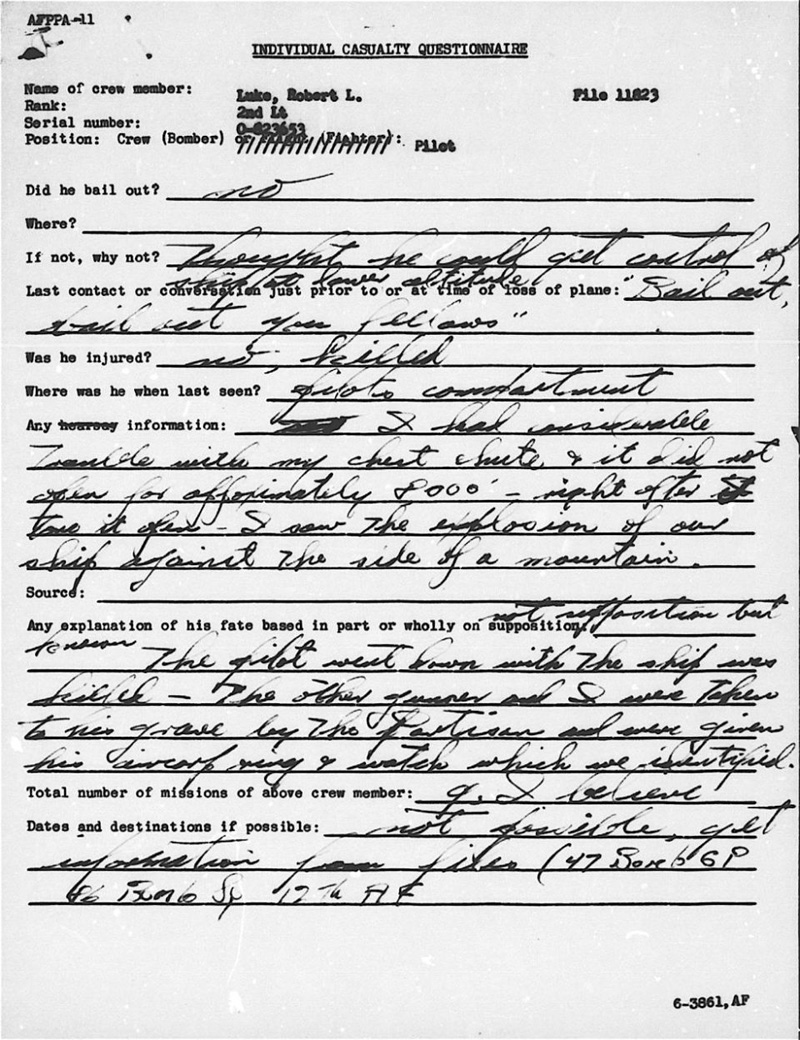 AFPPA-11
INDIVIDUAL CASUALTY QUESTIONNAIRE
Name of crew member: Luke, Robert L. File 11823
Rank: 2nd Lt
Serial number: O-823653
Position: Crew (Bomber) or (Fighter): Pilot
Did he bail out? no
Where?
If not, why not? Thought he could get control of
ship at lower altitude
Last contact or conversation just prior to or at time of loss of plane: "Bail out,
bail out you fellows"
Was he injured? no, killed
Where was he when last seen? pilots compartment
Any hearsay information: I had considerable
trouble with my chest chute & it did not
open for approximately 8000' - right after
it open - I saw the explosion of our
ship against the side of a mountain.
Source:
Any explanation of his fate based in part or wholly on supposition: not supposition but
The pilot went down with the ship was
killed - The other gunner and I were taken
to his grave by the Partisan and were given
his aircorp ring & watch which we identified.
Total number of missions of above crew member: 9. I believe
Dates and destinations if possible: not possible, get
information from files (47 Bomb GP
86 Bomb Sq 12th AF
6-3861, AF